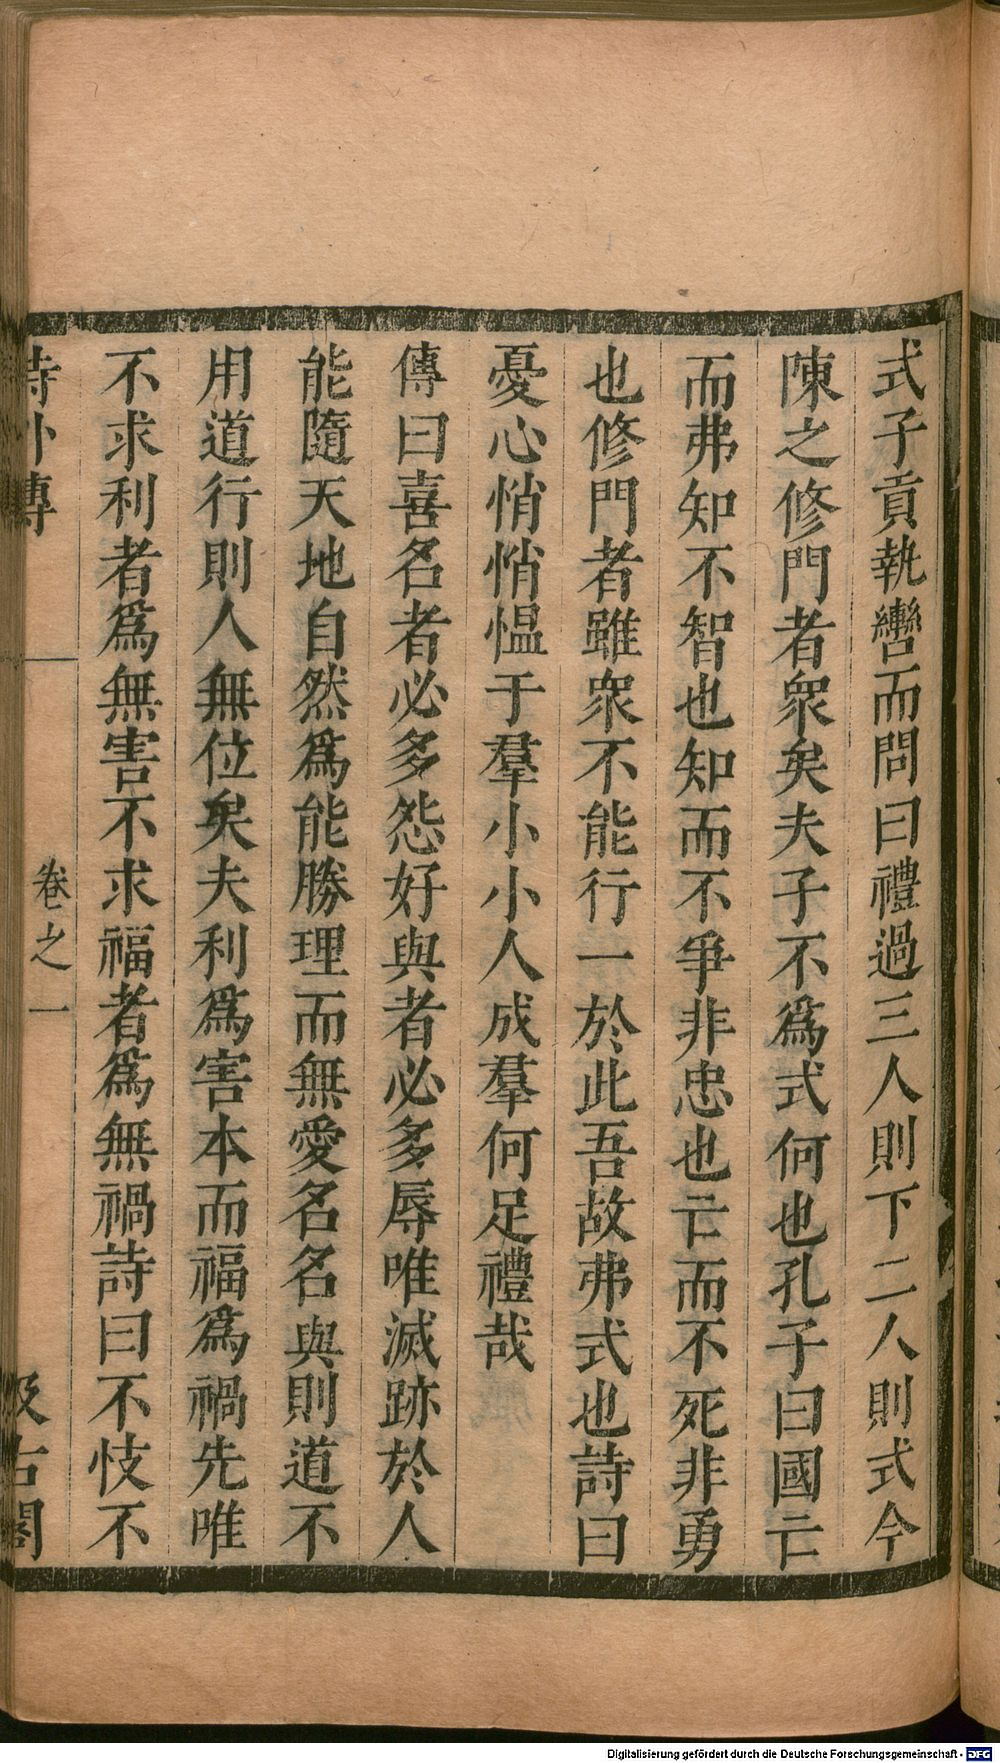 式子貢執轡而問曰禮過三人則下二人則式今
陳之修門者衆矣夫子不爲式何也孔子曰國亡
而弗知不智也知而不爭非忠也亡而不死非勇
也修門者雖衆不能行一於此吾故弗式也詩曰
憂心悄悄慍于羣小小人成羣何足禮哉
傳曰喜名者必多怨好與者必多辱唯滅跡於人
能隨天地自然爲能勝理而無愛名名與則道不
用道行則人無位矣夫利爲害本而福爲禍先唯
不求利者爲無害不求福者爲無禍詩曰不忮不
詩外傳
卷之一
汲古閣
Digitalisierung gefördert durch die Deutsche Forschungsgemeinschaft - DFG